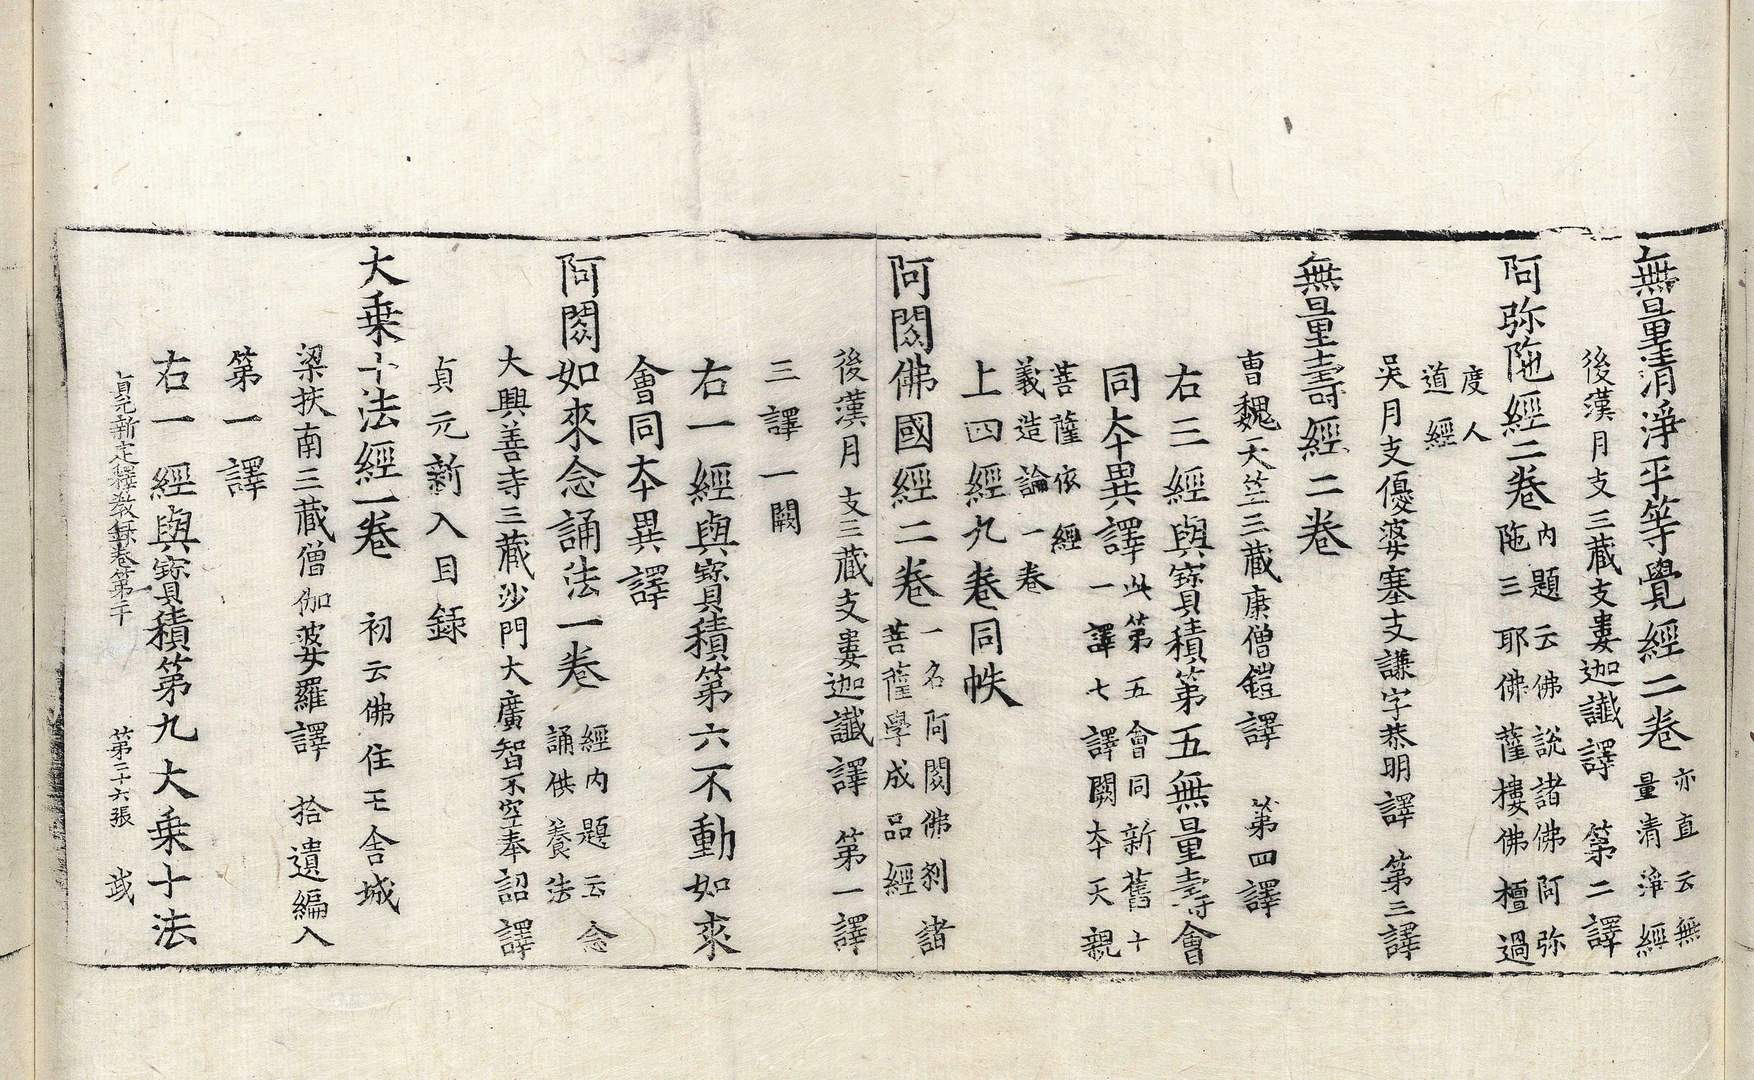 無量清淨平等覺經二卷亦直云無量清淨經
後漢月支三藏支婁迦讖譯 第二譯
阿弥陁經二卷內題云佛說諸佛阿弥陁三耶佛薩樓佛檀過
度人道經
吳月支優婆塞支謙字恭明譯 第三譯
無量壽經二卷
曹魏天竺三藏康僧鎧譯 第四譯
右三經與寶積第五無量壽會
同本異譯此第五會同新舊十一譯七譯闕本天親
菩薩依經義造論一卷
上四經九卷同帙
阿閦佛國經二卷一名阿閦佛剎諸菩薩學成品經
後漢月支三藏支婁迦讖譯 第一譯
三譯一闕
右一經與寶積第六不動如來
會同本異譯
阿閦如來念誦法一卷經內題云念誦供養法
大興善寺三藏沙門大廣智不空奉詔譯
貞元新入目錄
大乗十法經一卷 初云佛住王舍城
梁扶南三藏僧伽婆羅譯 拾遺編入
第一譯
右一經與寶積第九大乗十法
貞元新定釋教錄卷第二十 第二十六張 㦯